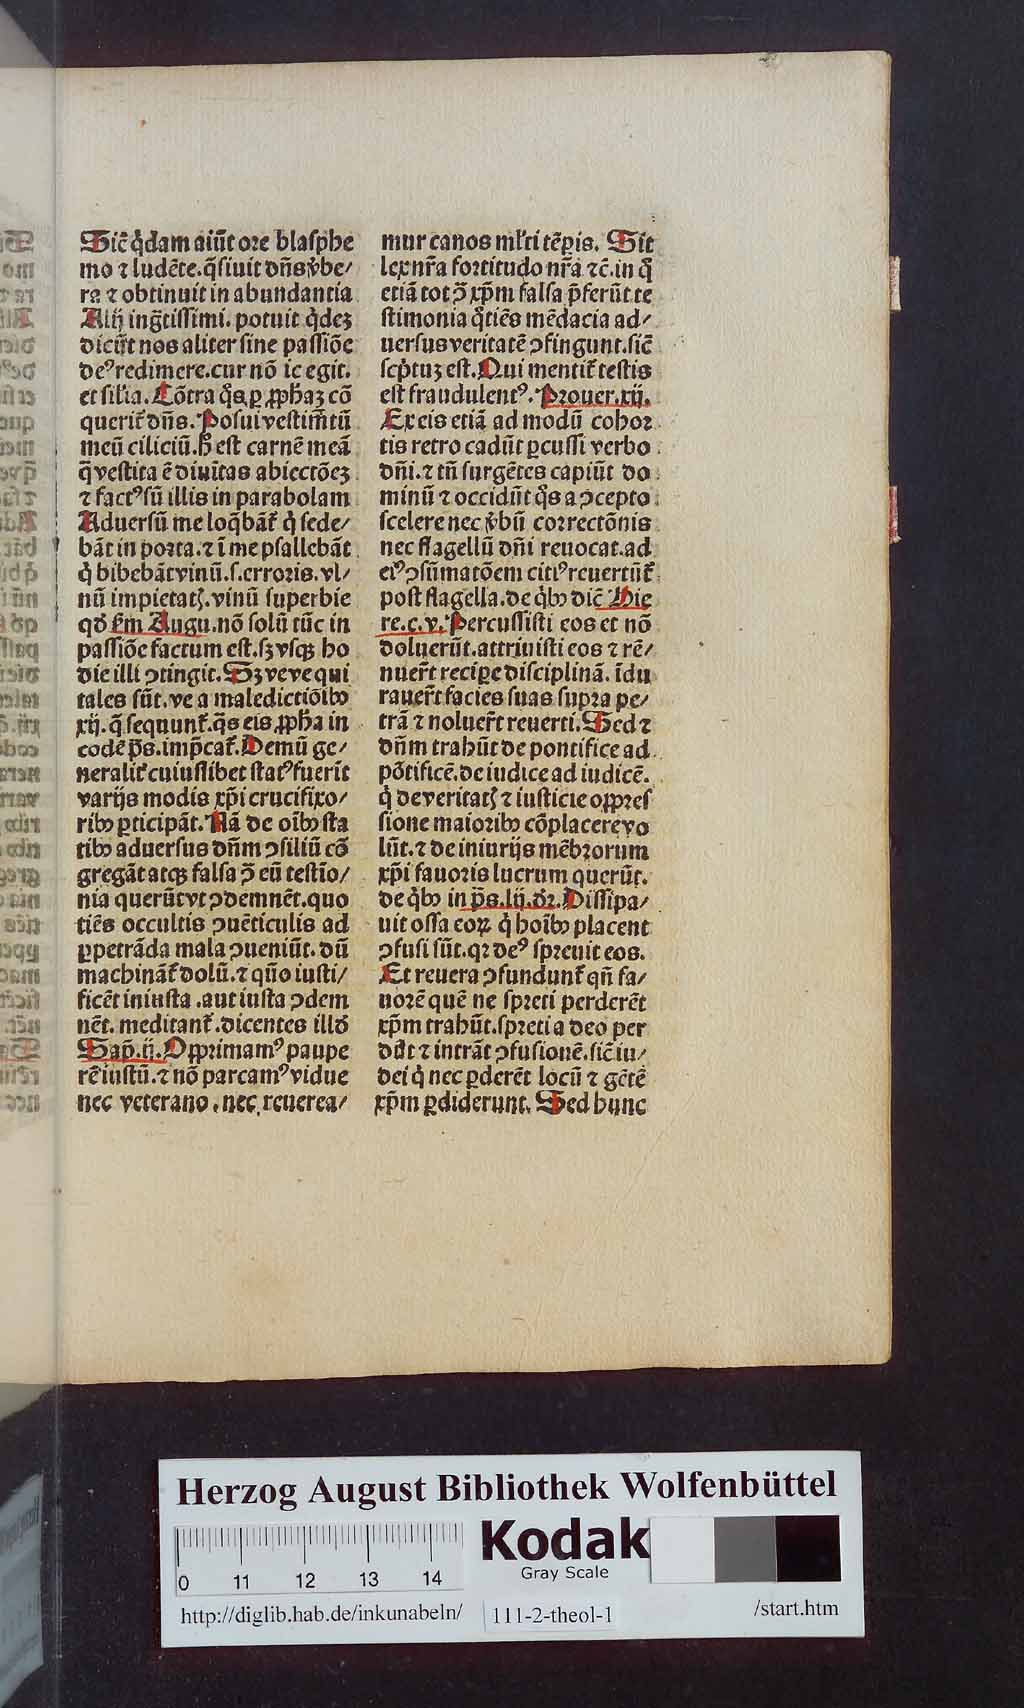 Sic̄ q̇dam aiūt ore blasphe
mo ⁊ ludēte. q̄siuit dn̄s v̄be⸗
ra ⁊ obtinuit in abundantia
Alij ing̃tissimi. potuit q̇deʒ
dicūt nos aliter sine passiōe
deꝰ redimere. cur nō ic egit.
et sil̓ia. Cōtra q̊s ꝑ ꝓphaʒ cō
querit᷑ dn̄s. Posui vestim̄tū
meū ciliciū. h̄ est carnē meā
q̄ vestita ē diuītas abiectōeʒ
⁊ factꝰ sū illis in parabolam
Aduersū me loq̄bāt᷑ q̇ sede⸗
bāt in porta. ⁊ ī me psallebāt
q̇ bibebāt vinū. s. erroris. vl⸗
nū impietatꝭ. vinū superbie
qd̓ s̄m Augu. nō solū tūc in
passiōe factum est. sꝫ vsqꝫ ho
die illi ꝯtingit. Sꝫ ve ve qui
tales sūt. ve a maledictiōibꝰ
xij. q̄ sequunt᷑. q̄s eis ꝓpha in
eodē p̄s. imp̄cat᷑. Demū ge⸗
neralit᷑ cuiuslibet statꝰ fuerīt
varijs modis xp̄i crucifixo⸗
ribꝰ ꝑticipāt. Nā de oībꝰ sta
tibꝰ aduersus dn̄m ꝯsiliū cō
gregāt atqꝫ falsa ꝯ̄ eū testīo⸗
nia querūt vt ꝯdemnēt. quo
tiēs occultis ꝯuēticulis ad
ꝑpetrāda mala ꝯueniūt. dū
machināt᷑ dolū. ⁊ qūo iusti⸗
ficēt iniusta . aut iusta ꝯdem
nēt. meditant᷑ . dicentes illd̓
Sap̄. ij. Opprimamꝰ paupe
rē iustū. ⁊ nō parcamꝰ vidue
nec veterano . nec reuerea⸗
mur canos ml̓ti tēꝑis. Sit
lex nr̄a fortitudo nr̄a ⁊c̄. in q̊
etiā tot ꝯ̄ xp̄m falsa p̄ferūt te
stimonia q̊tiēs mēdacia ad⸗
uersus veritatē ꝯfingunt. sic̄
scp̄tuʒ est. Qui mentit᷑ testis
est fraudulentꝰ. Prouer. xij.
Ex eis etiā ad modū cohor
tis retro cadūt ꝑcussi verbo
dn̄i. ⁊ tn̄ surgētes capiūt do
minū ⁊ occidūt q̊s a ꝯcepto
scelere nec v̄bū correctōnis
nec flagellū dn̄i reuocat. ad
eiꝰ ꝯsūmatōem citiꝰ reuertūt᷑
post flagella. de q̇bꝰ dic̄ Hie
re. c. v. Percussisti eos et nō
doluerūt. attriuisti eos ⁊ rē⸗
nuer̄t recipe disciplinā. īdu
rauer̄t facies suas supra pe⸗
trā ⁊ noluer̄t reuerti. Sed ⁊
dn̄m trahūt de pontifice ad
pōtificē. de iudice ad iudicē.
q̇ de veritatꝭ ⁊ iusticie oppres
sione maioribꝰ cōplacere vo
lūt. ⁊ de iniurijs mēbrorum
xp̄i fauoris lucrum querūt.
de q̇bꝰ in p̄s. lij. dr̄. Dissipa⸗
uit ossa eoꝝ q̇ hoībꝰ placent
ꝯfusi sūt. qꝛ deꝰ spreuit eos.
Et reuera ꝯfundunt᷑ qn̄ fa⸗
uorē quē ne spreti perderēt
xp̄m trahūt. spreti a deo per
dūt ⁊ intrāt ꝯfusionē. sic̄ iu⸗
dei q̇ nec ꝑderēt locū ⁊ gētē
xp̄m ꝑdiderunt. Sed hunc
Herzog August Bibliothek Wolfenbüttel
Kodak
Gray Scale
0 11 12 13 14
http://diglib.hab.de/inkunabeln/ 111-2-theol-1 /start.htm